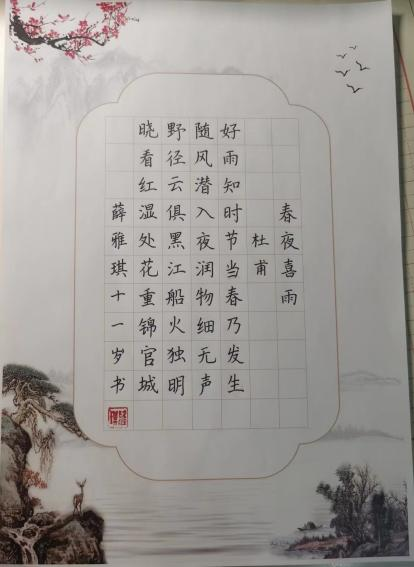 春夜喜雨
杜甫
好雨知时节当春乃发生
随风潜入夜润物细无声
野径云俱黑江船火独明
晓看红湿处花重锦官城
薛雅琪十一岁书